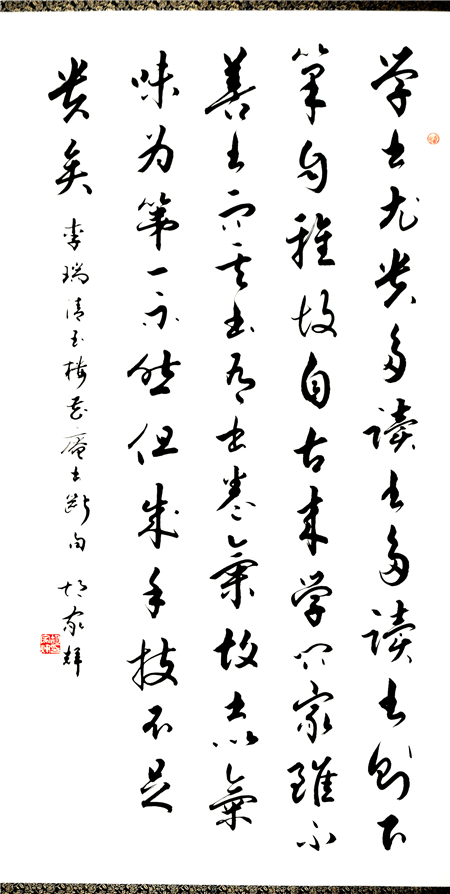 学书尤贵多读书多读书则下
筆自雅故自古来学问家雖不
善书而其书有书卷氣故书以氣
味为第一不然但成手技不足
贵矣
李瑞清玉梅花庵书断句 胡家辉